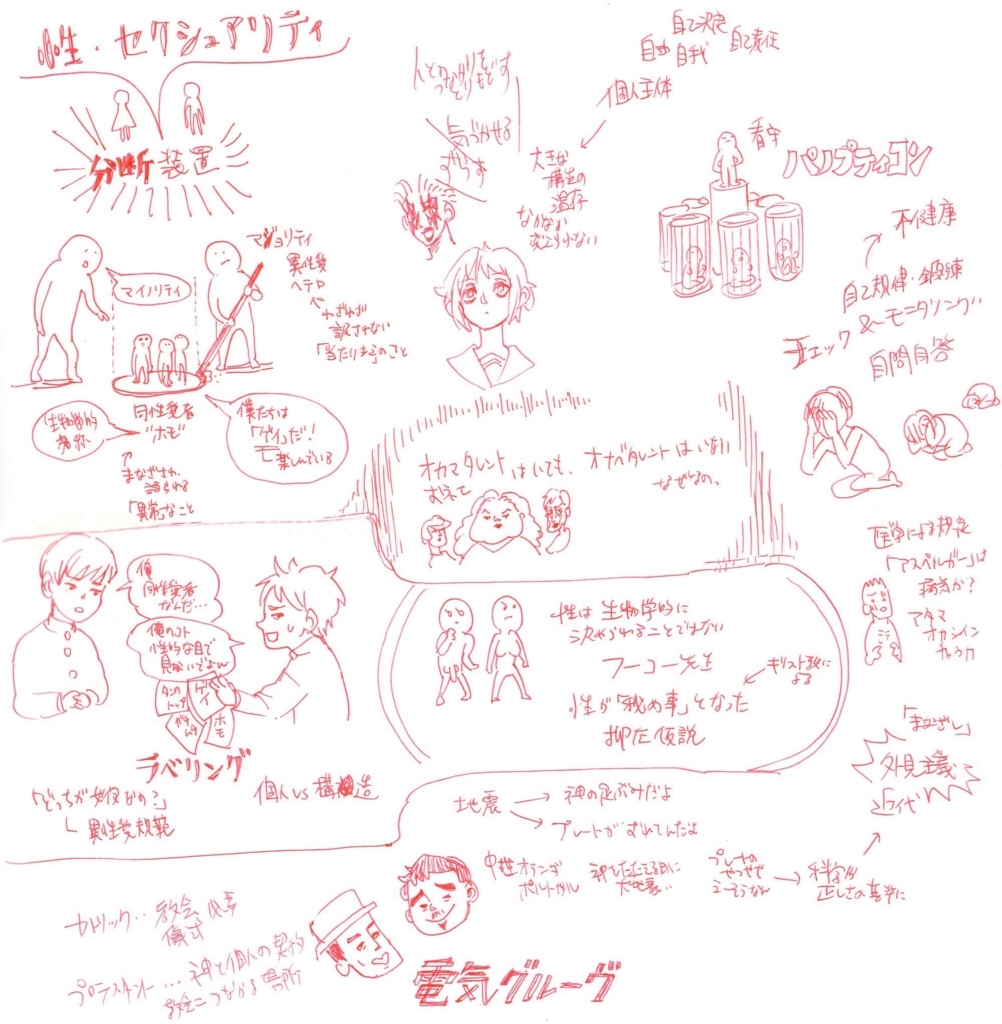 性・セクシュアリティ
分断装置
マイノリティ
マジョリティ
異性愛
ヘテロ
わざわざ
訳されない
「当たりまえ」のこと
生物学的
同性愛者
"ホモ"
まなざされ
語られる
「異常」なこと
僕たちは
「ゲイ」だ!
楽しんでいる
人とのつながりを
とりもどす
気づかせる
ずらす
大きな
構造の
温存
なかなか
変えられない
個人主体
自己決定
自由 自我 自己責任
看守
パノプティコン
不健康
自己規律・鍛練
チェック&モニタリング
自問自答
オカマタレントはいても、オナベタレントはいない
なぜなの、
俺
同性愛者
なんだ…
俺のコト
性的な目で
見ないでよん
タンク
トップ
ゲイ
ホモ
ラベリング
「どっちが女役なの?」
異性愛規範
個人 vs 構造
性は生物学的に
決められることではない
フーコー先生
キリスト教に
よる
性が「秘め事」となった
抑圧仮説
医学による規範
「アスペルガー」は
病気か?
アタマ
オカシイン
「まなざし」
外見主義
近代
地震
神の足ぶみだよ
プレートがずれてんだよ
中世オランダ
ポルトガル
神をたたえる日に
大地震‥
プレートの
せいで
科学が
正しさの基準に
カトリック‥教会
儀式
プロテスタント…神と個人の契約
教会=つながる場所
電気グルーヴ